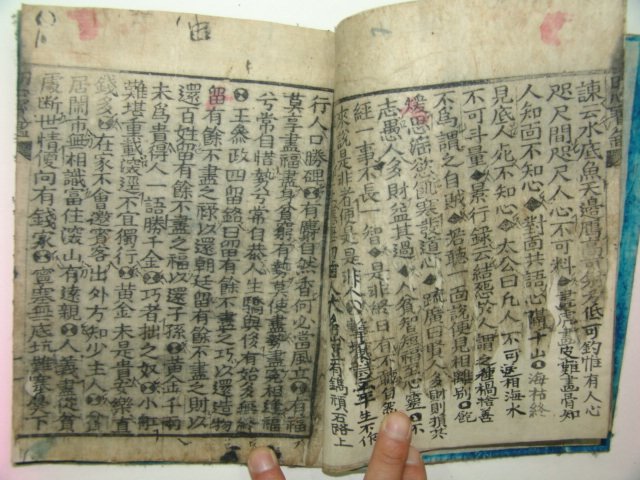 諫云水底魚天邊鴈高可射兮低可釣惟有人心
咫尺間咫尺人心不可料畫虎畫皮難畫骨知
人知面不知心對面共語心隔千山海枯終
見底人死不知心太公曰凡人不可逆相海水
不可斗量景行錄云結怨於人謂之種禍捨善
不爲謂之自賊若聽一面說便見相離別飽
煖思淫慾飢寒發道心疏廣曰賢人多財則損其
志愚人多財益其過人貧智短福至心靈不
經一事不長一智是非終日有不聽自然無
來說是非者便是是非人平生不作
豈有鐫頑石路上
行人口勝碑有麝自然香何必當風立有福
莫享盡福盡身貧窮有勢莫使盡勢盡冤相逢福
兮常自惜勢兮常自恭人生驕與侈有始多無終
王參政四留銘曰留有餘不盡之巧以還造物
留有餘不盡之祿以還朝廷留有餘不盡之財以
還百姓留有餘不盡之福以還子孫黃金千兩
未爲貴得人一語勝千金巧者拙之奴小船
難堪重載深逕不宜獨行黃金未是貴安樂直
錢多在家不會邀賓客出外方知少主人貧
居鬧市無相識富住深山有遠親人義盡從貧
處斷世情便向有錢家寧塞無底坑難塞鼻下